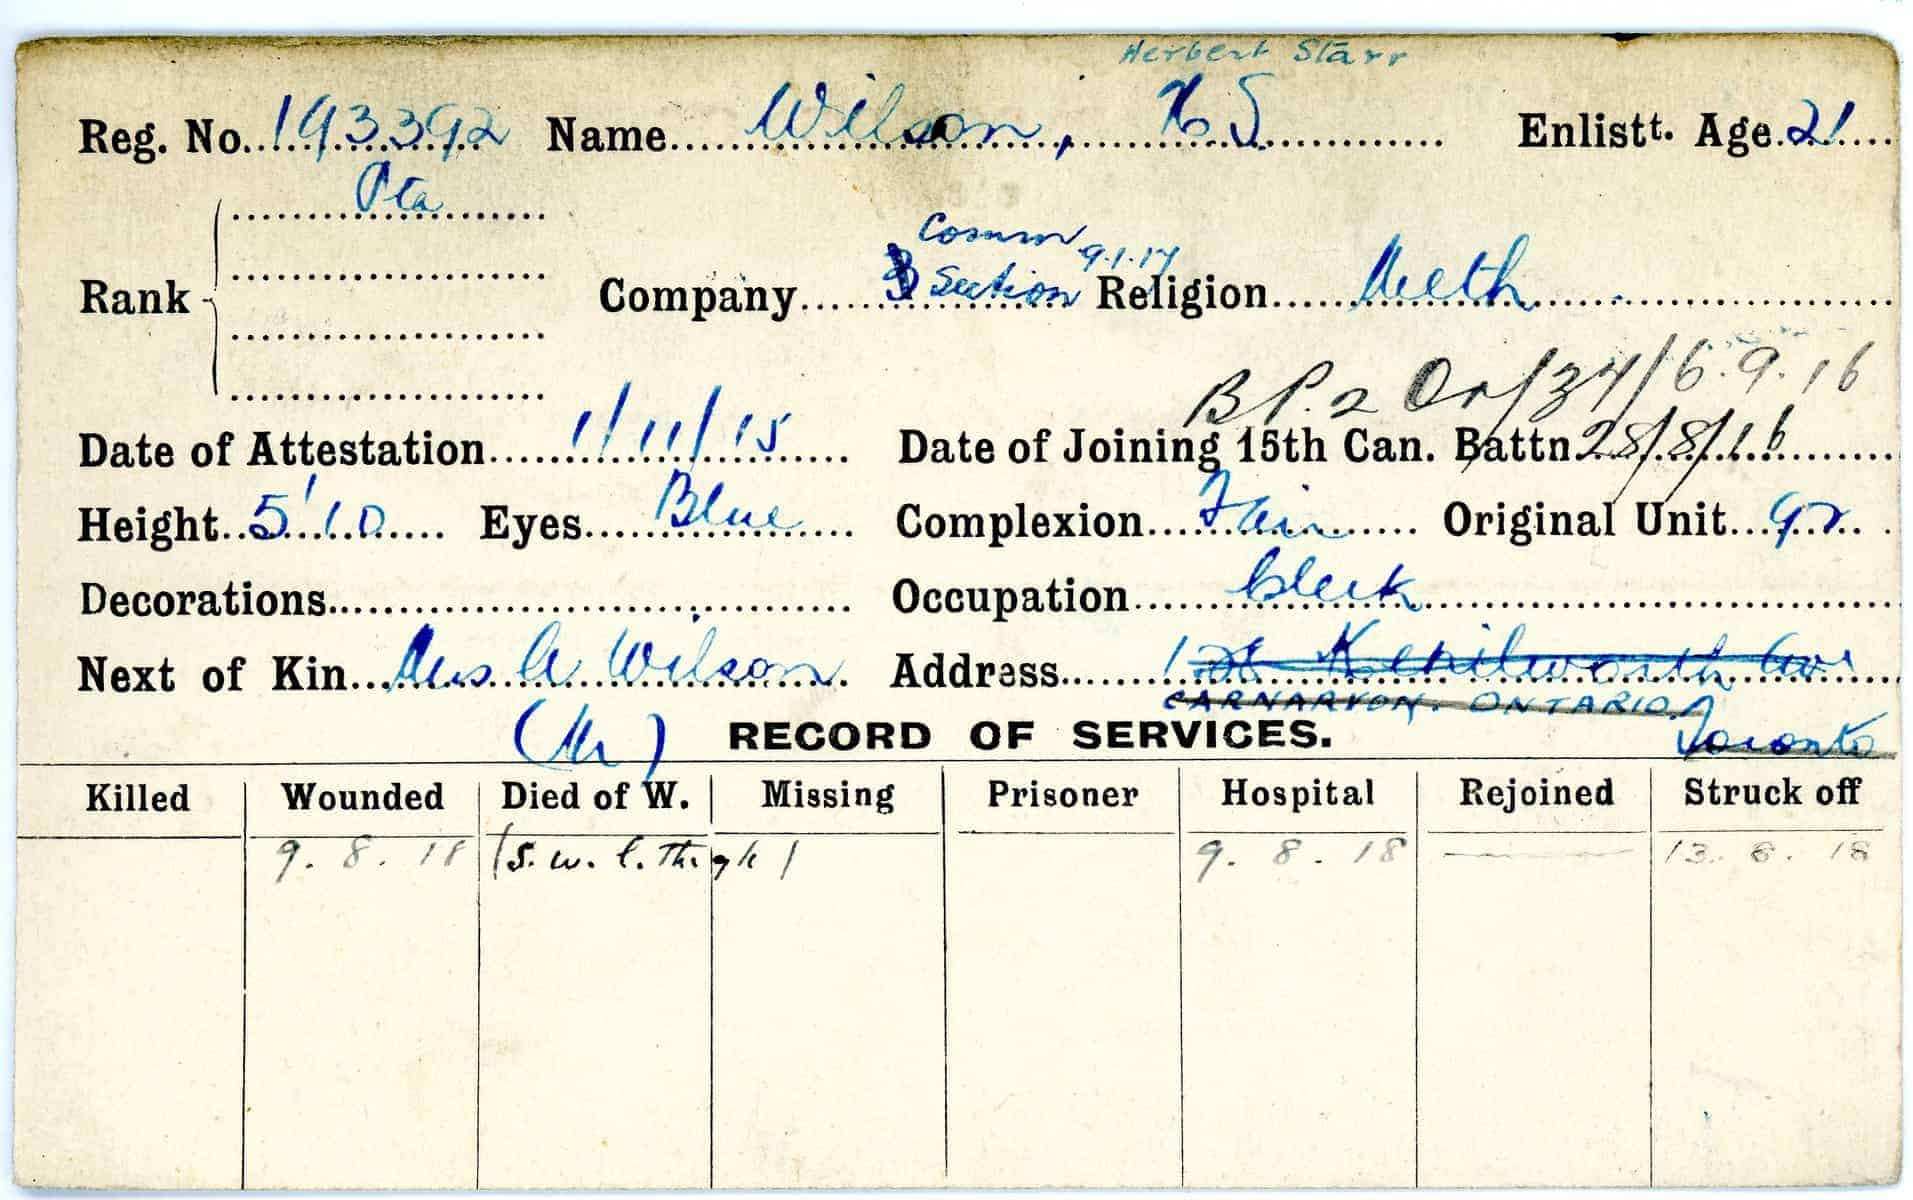 Herbert Starr
Reg. No. 193392 Name Wilson, H S. Enlistt. Age 21
Pte
Comm
9.1.17
Rank Company Section Religion Meth
B P. 2 Or/34/6.9.16
Date of Attestation 1/11/15 Date of Joining 15th Can. Battn. 28/8/16
Height 5'10 Eyes Blue Complexion Fair Original Unit 92
Decorations Occupation Clerk
Next of Kin Mrs A Wilson Address Kenilworth Av.
CARNARVON. ONTARIO.
(M) RECORD OF SERVICES. Toronto
Killed Wounded Died of W. Missing Prisoner Hospital Rejoined Struck off
9.8.18 (s.w.l. Thigh) 9.8.18 13.8.18